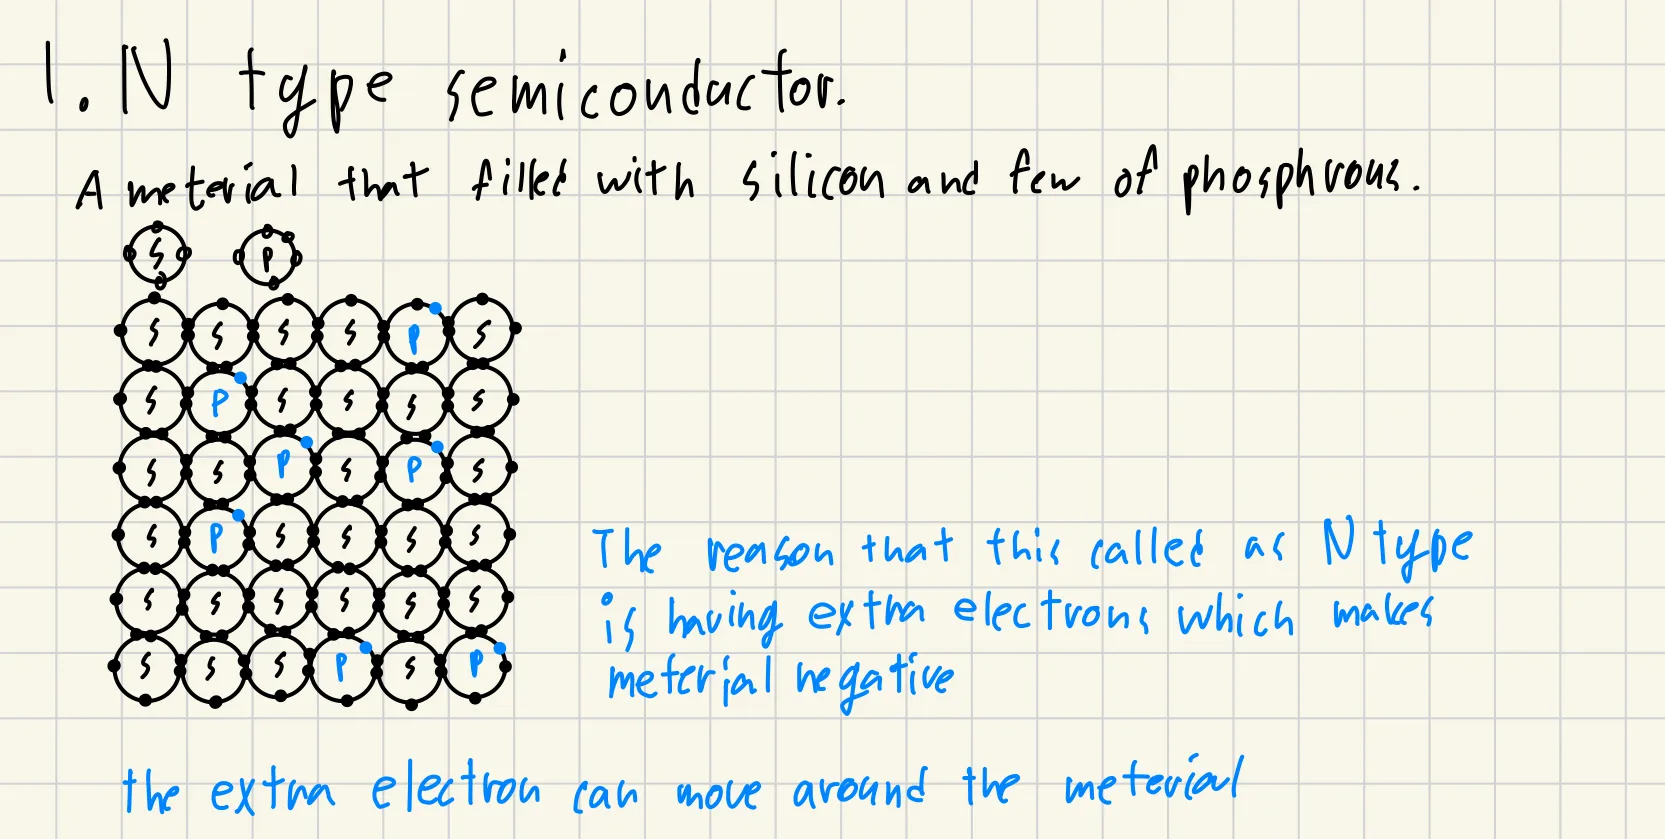 1. N type semiconductor.
A meterial that filled with silicon and few of phosphrous.
S P
S S S S P S
S P S S S S
S S P S P S
S P S S S S
S S S S S S
S S S P S P
The reason that this called as N type
is having extra electrons which makes
meterial negative
the extra electron can move around the meterial